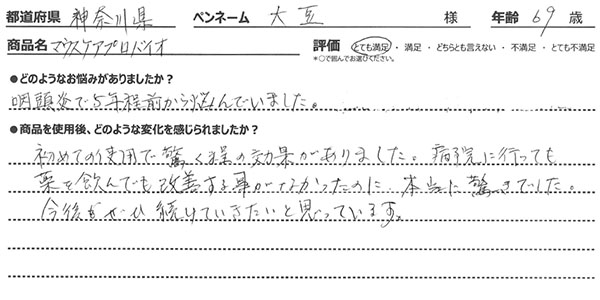 都道府県 神奈川県 ペンネーム 大豆 様 年齢 69 歳
商品名 マウスケアプロバイオ 評価 とても満足 ・ 満足 ・ どちらとも言えない ・ 不満足 ・ とても不満足
*○で囲んでお選びください。
●どのようなお悩みがありましたか？
咽頭炎で5年程前から悩んでいました。
●商品を使用後、どのような変化を感じられましたか？
初めての使用で驚く程の効果がありました。病院に行っても
薬を飲んでも改善する事がなかったのに、本当に驚きでした。
今後もぜひ続けていきたいと思っています。